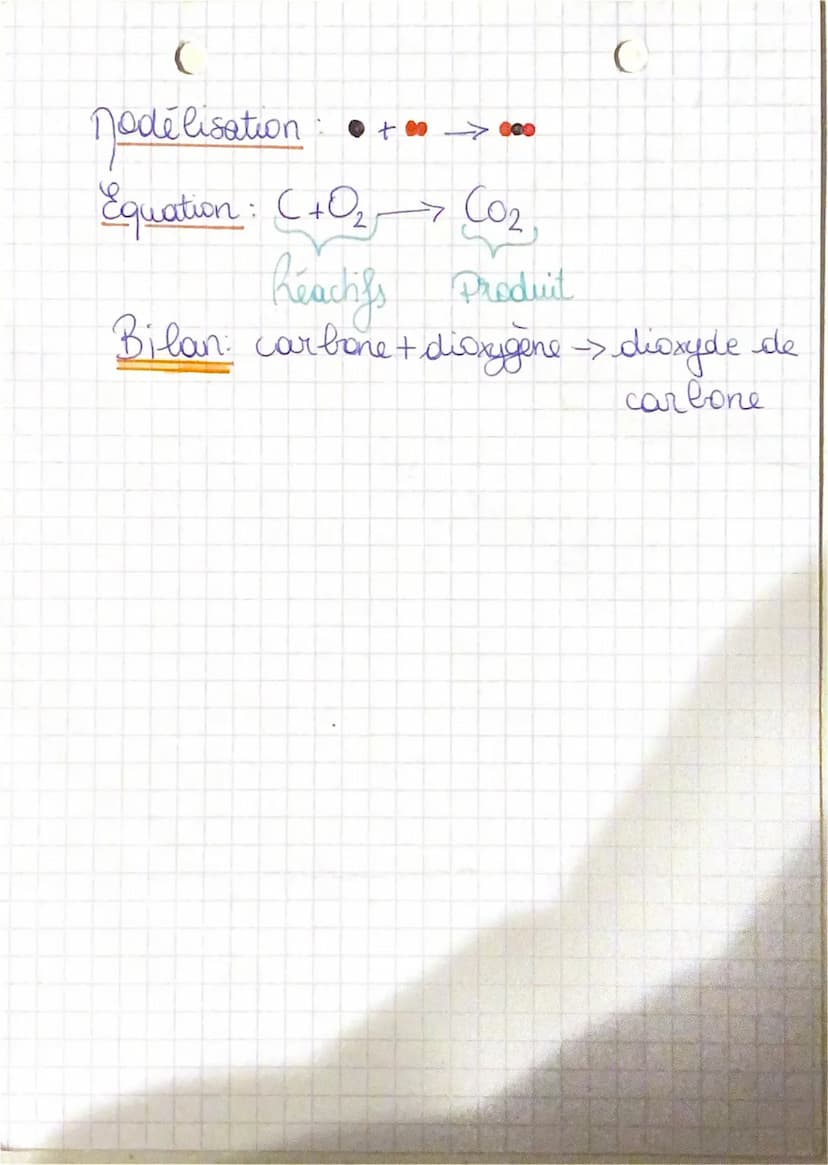 Modélisation : + →
Equation : C + O₂ → CO₂
Réactifs Produit
Bilan : carbone + dioxygène → dioxyde de
carbone